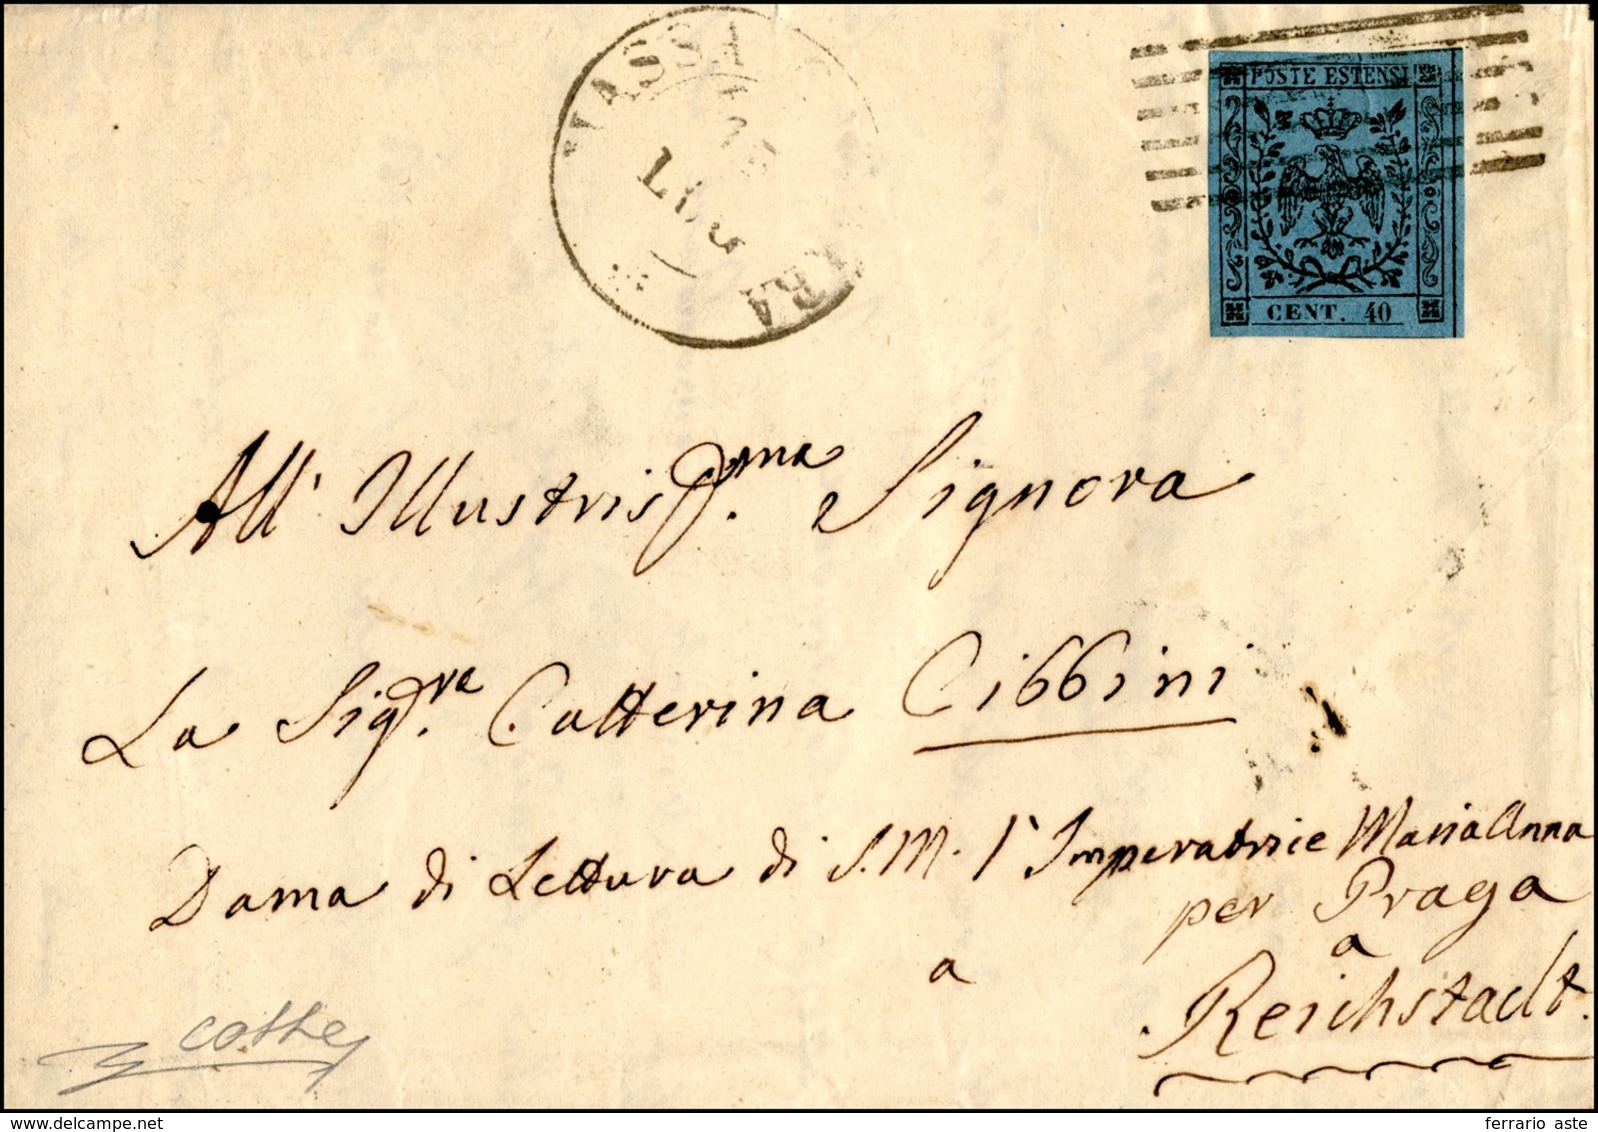 POSTE ESTENSI
CENT. 40
MASSA
RRA
All' Illustriss.ma Signora
La Sig.ra Catterina Cibbini
Dama di Lettura di S. M. l'Imperatrice Maria Anna
per Praga
a
a
Reichstadt.
cotthe
delcampe.net
ferrario aste